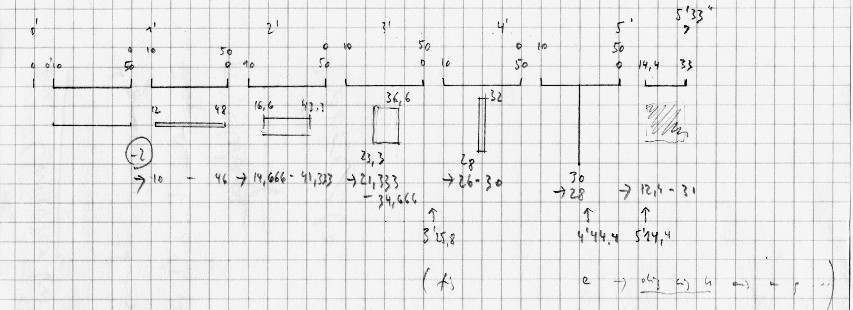 0' 1' 2' 3' 4' 5' 5'33"
0 10 50 0 10 50 0 10 50 0 10 50 0 10 50 14,4 33
12 48 16,6 43,3 36,6 32
-2 23,3 28 30
→ 10 - 46 → 14,666 - 41,333 → 21,333 - 34,666 → 26-30 → 28 → 12,4 - 31
↑ ↑ ↑
3'25,8 4'44,4 5'14,4
( fis e →